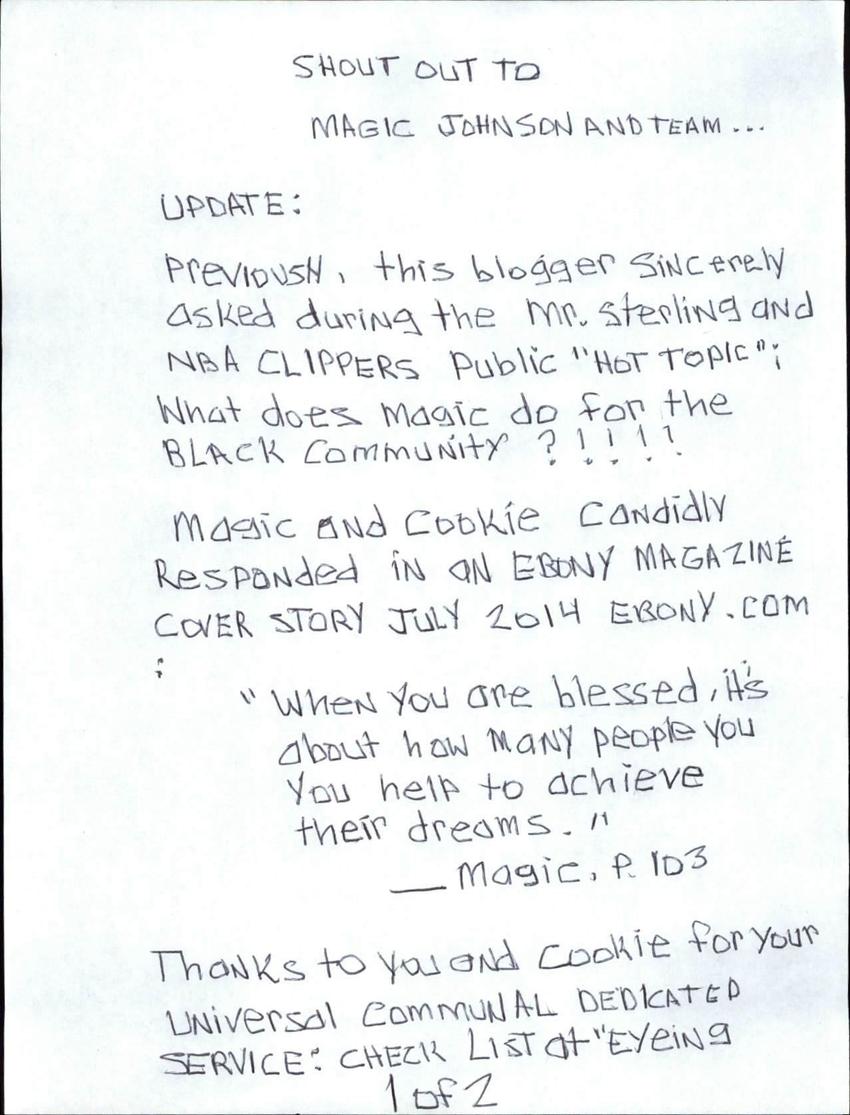 SHOUT OUT TO
MAGIC JOHNSON AND TEAM...
UPDATE:
Previously, this blogger SiNcerely
asked during the Mr. Sterling and
NBA CLIPPERS Public "HOT TOPIC";
What does Magic do for the
BLACK Community ?!!!!
Magic and Cookie Candidly
Responded iN aN EBONY MAGAZINE
COVER STORY JULY 2014 EBONY.COM
:
"When You are blessed, it's
about how Many people you
You help to achieve
their dreams."
__ Magic, P. 103
Thanks to you and Cookie for your
UNiversal COMMUNAL DEDICATED
SERVICE: CHECK LIST at "EYEiNg
1 of 2